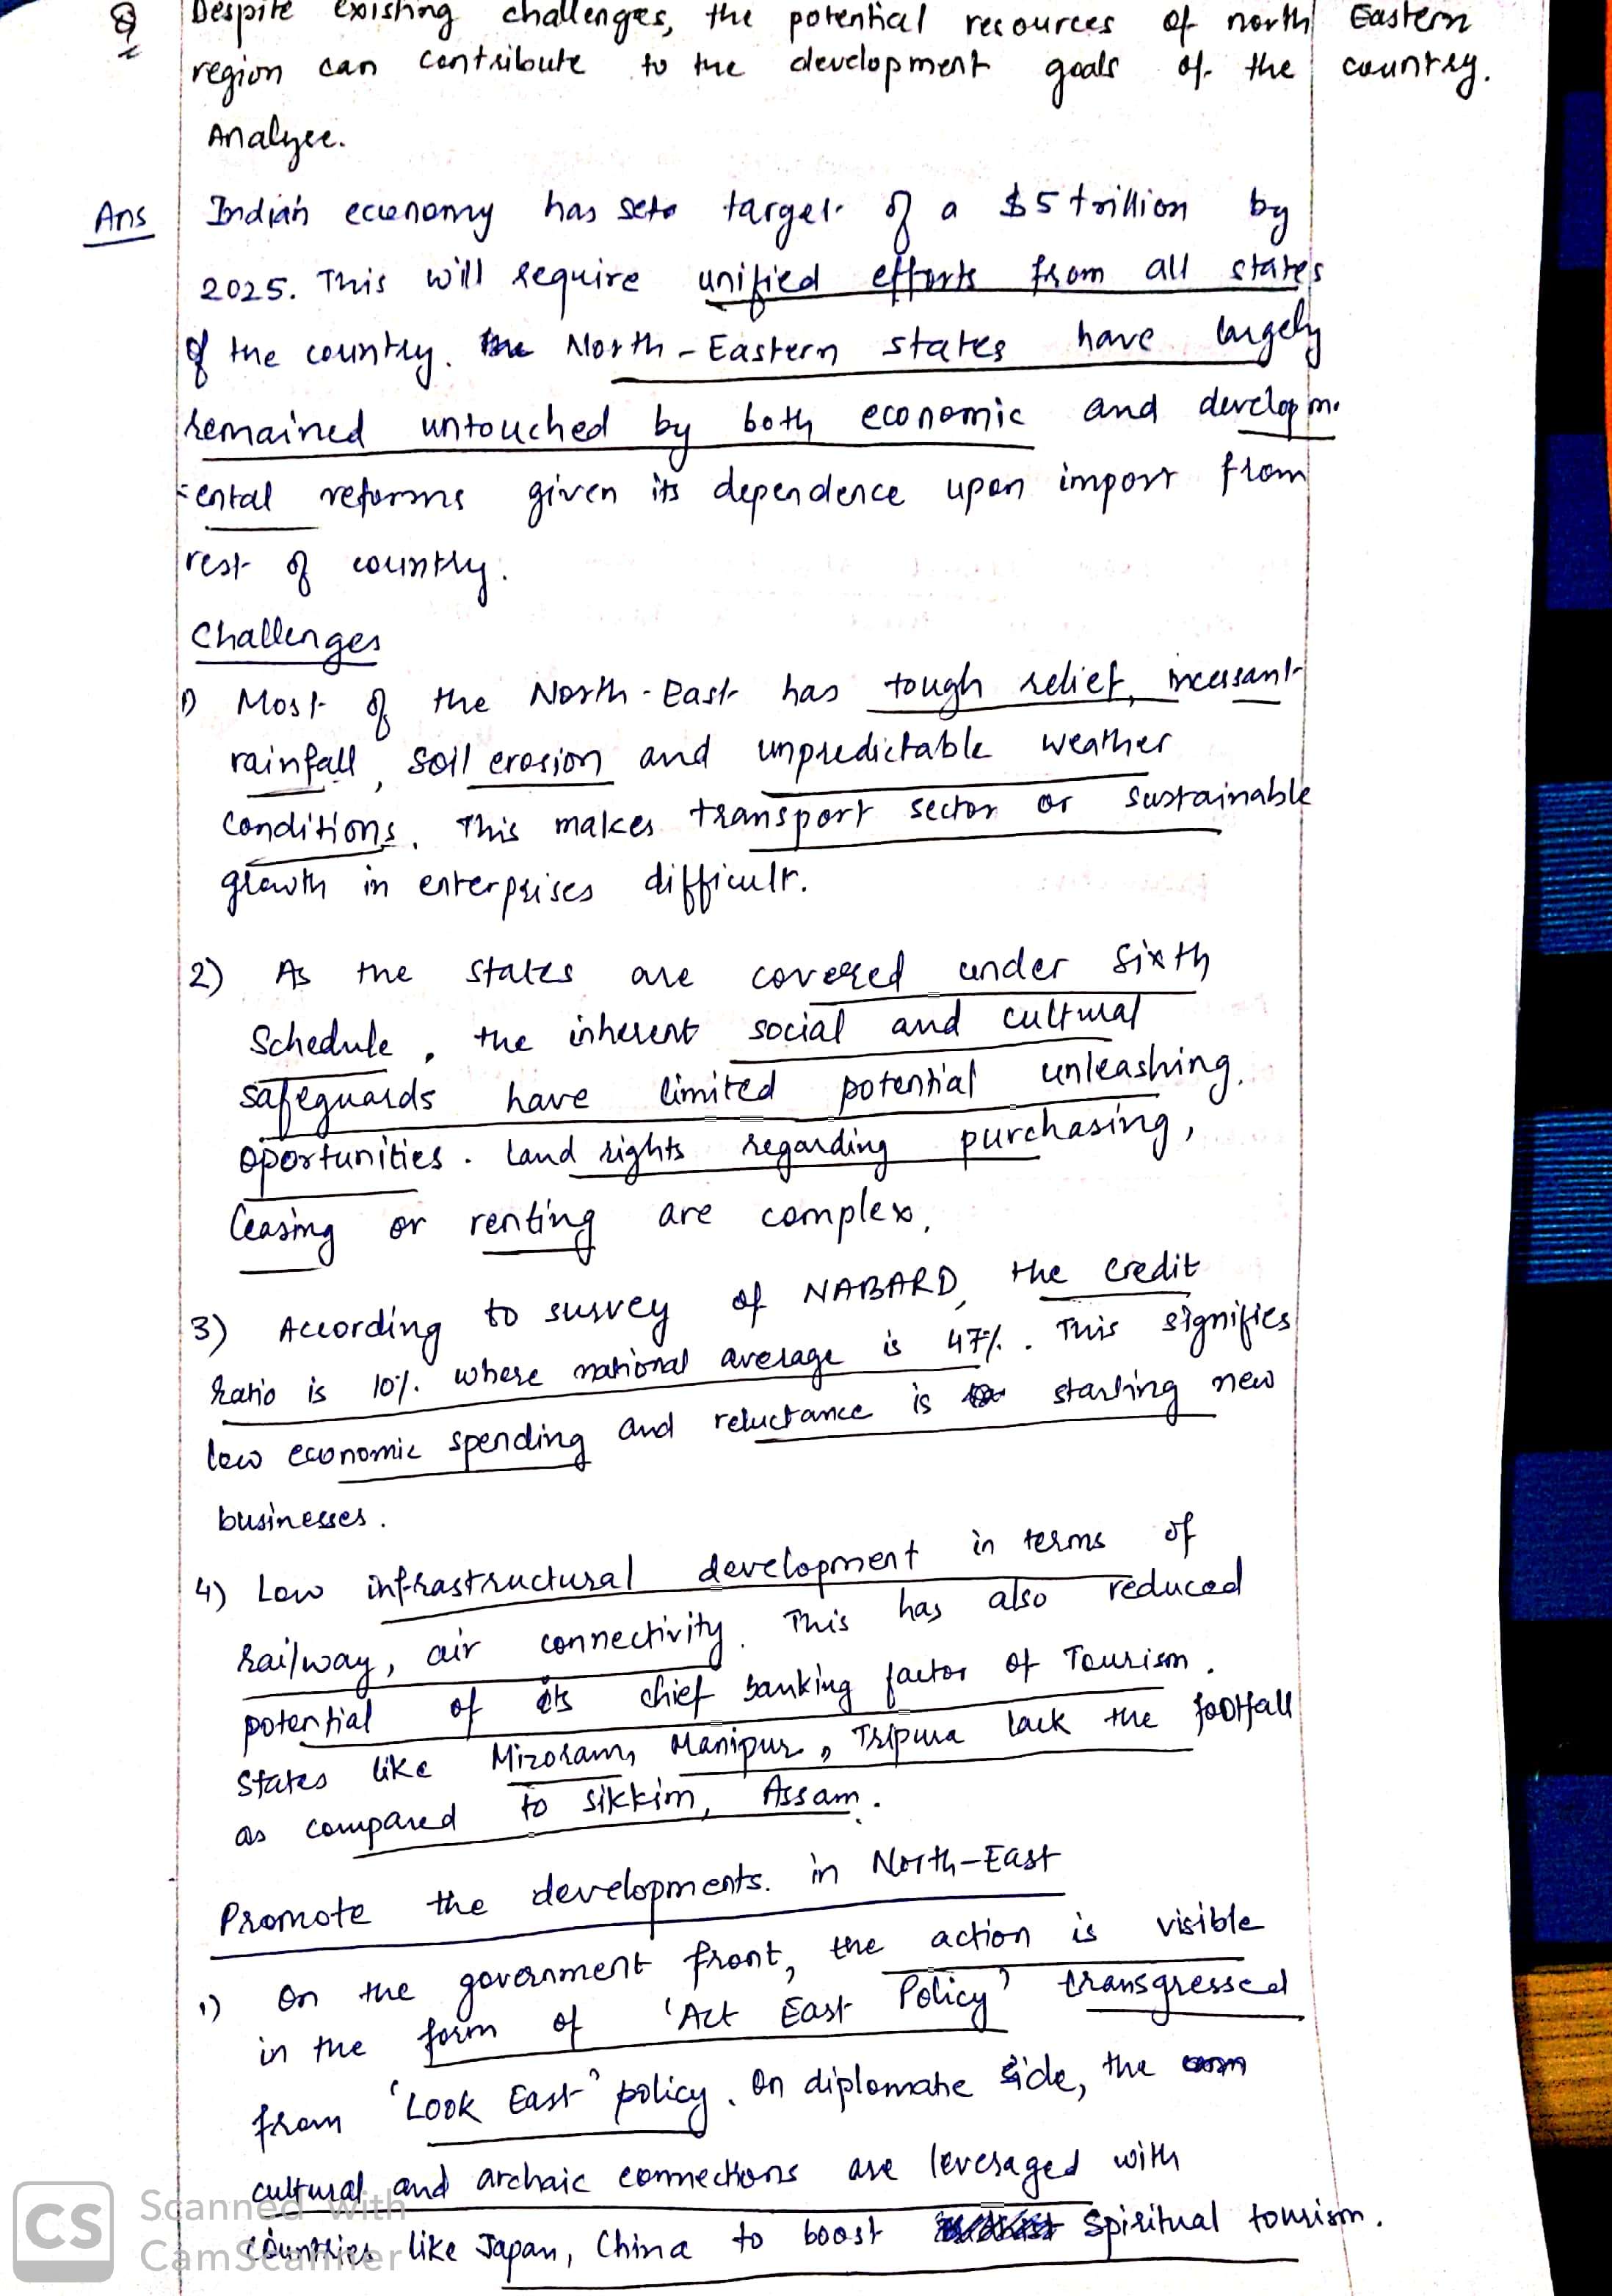 Q Despite existing challenges, the potential resources of north Eastern
region can contribute to the development goals of the country.
Analyse.
Ans Indian economy has set target of a $5 trillion by
2025. This will require unified efforts from all states
of the country. The North-Eastern states have largely
remained untouched by both economic and developm
ental reforms given its dependence upon import from
rest of country.
Challenges
1) Most of the North-East has tough relief, incessant
rainfall, soil erosion and unpredictable weather
conditions. This makes transport sector or sustainable
growth in enterprises difficult.
2) As the states are covered under Sixth
Schedule, the inherent social and cultural
safeguards have limited potential unleashing
oportunities. Land rights regarding purchasing,
leasing or renting are complex.
3) According to survey of NABARD, the credit
ratio is 10% where national average is 47%. This signifies
low economic spending and reluctance is starting new
businesses.
4) Low infrastructural development in terms of
railway, air connectivity. This has also reduced
potential of its chief banking factor of Tourism.
States like Mizoram, Manipur, Tripura lack the footfall
as compared to Sikkim, Assam.
Promote the developments in North-East
1) On the government front, the action is visible
in the form of 'Act East Policy' transgressed
from 'Look East' policy. On diplomatic side, the
cultural and archaic connections are leveraged with
countries like Japan, China to boost spiritual tourism.
CS Scanned with
CamScanner